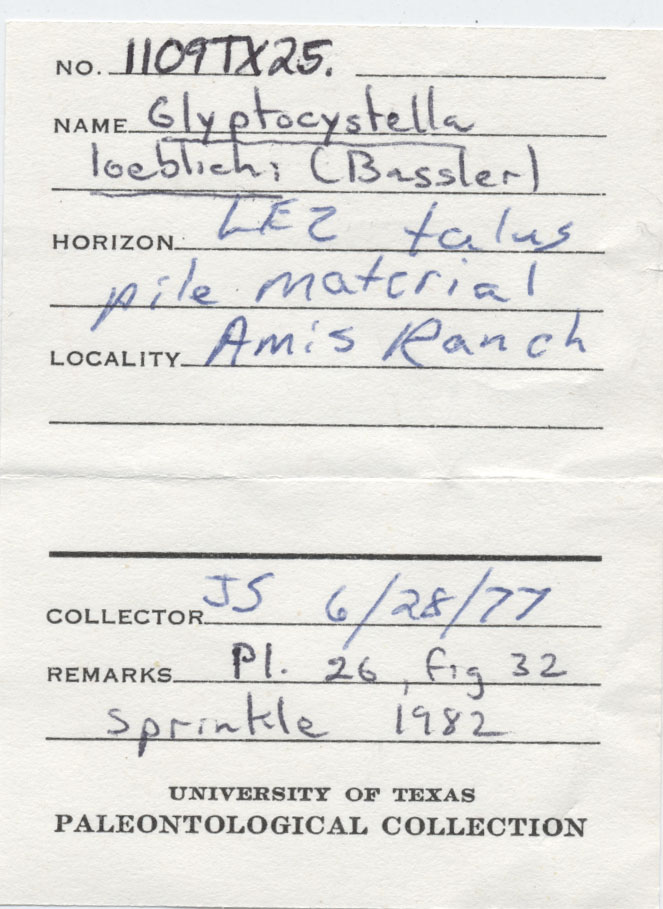 NO. 1109TX25.
NAME Glyptocystella
loeblichi (Bassler)
HORIZON LEZ talus
pile material
LOCALITY Amis Ranch
COLLECTOR JS 6/28/77
REMARKS Pl. 26, fig 32
Sprinkle 1982
UNIVERSITY OF TEXAS
PALEONTOLOGICAL COLLECTION